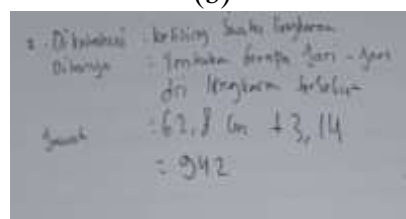 (b)
2. Diketahui : keliling suatu lingkaran
Ditanya : Tentukan berapa jari - jari
dri lingkaran tersebut
Jawab : 62,8 cm + 3,14
= 942